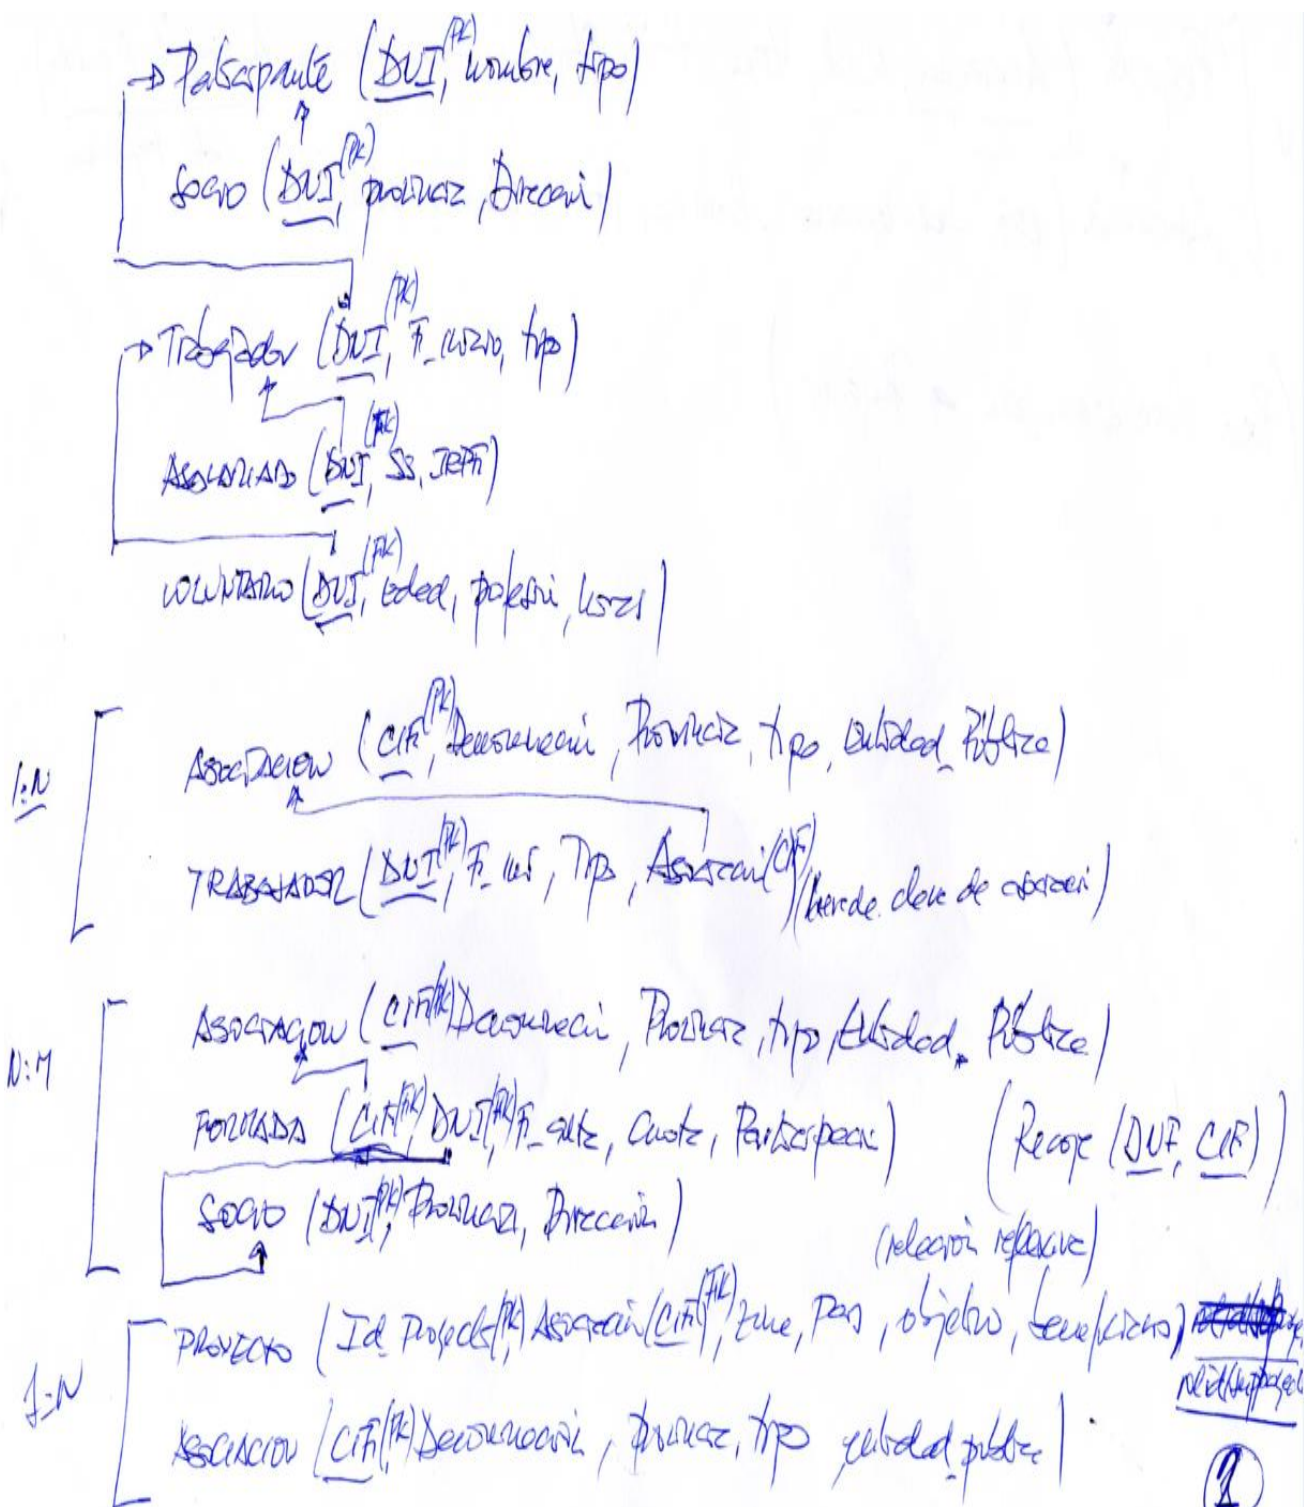 Participante (DNI(PK), nombre, tipo)
Socio (DNI(PK), provincia, Dirección)
Trabajador (DNI(PK), F_inicio, tipo)
ASALARIADO (DNI(PK), SS, IRPF)
VOLUNTARIO (DNI(PK), edad, profesión, horas)
1:N
ASOCIACION (CIF(PK), Denominación, Provincia, tipo, utilidad_Pública)
TRABAJADOR (DNI(PK), F_ini, Tipo, Asociación(CIF) (hereda clave de asociación)
N:M
ASOCIACION (CIF(PK) Denominación, Provincia, tipo, Utilidad_Pública)
FORMADA (CIF(FK), DNI(FK), F_alta, Cuota, Participación) (Recoge (DNI, CIF))
SOCIO (DNI(PK), Provincia, Dirección)
(relación reflexiva)
1:N
PROYECTO (Id_Proyecto(PK), Asociación(CIF)(FK), zona, País, objetivo, beneficiarios)
ASOCIACION (CIF(PK) Denominación, provincia, tipo utilidad_pública)